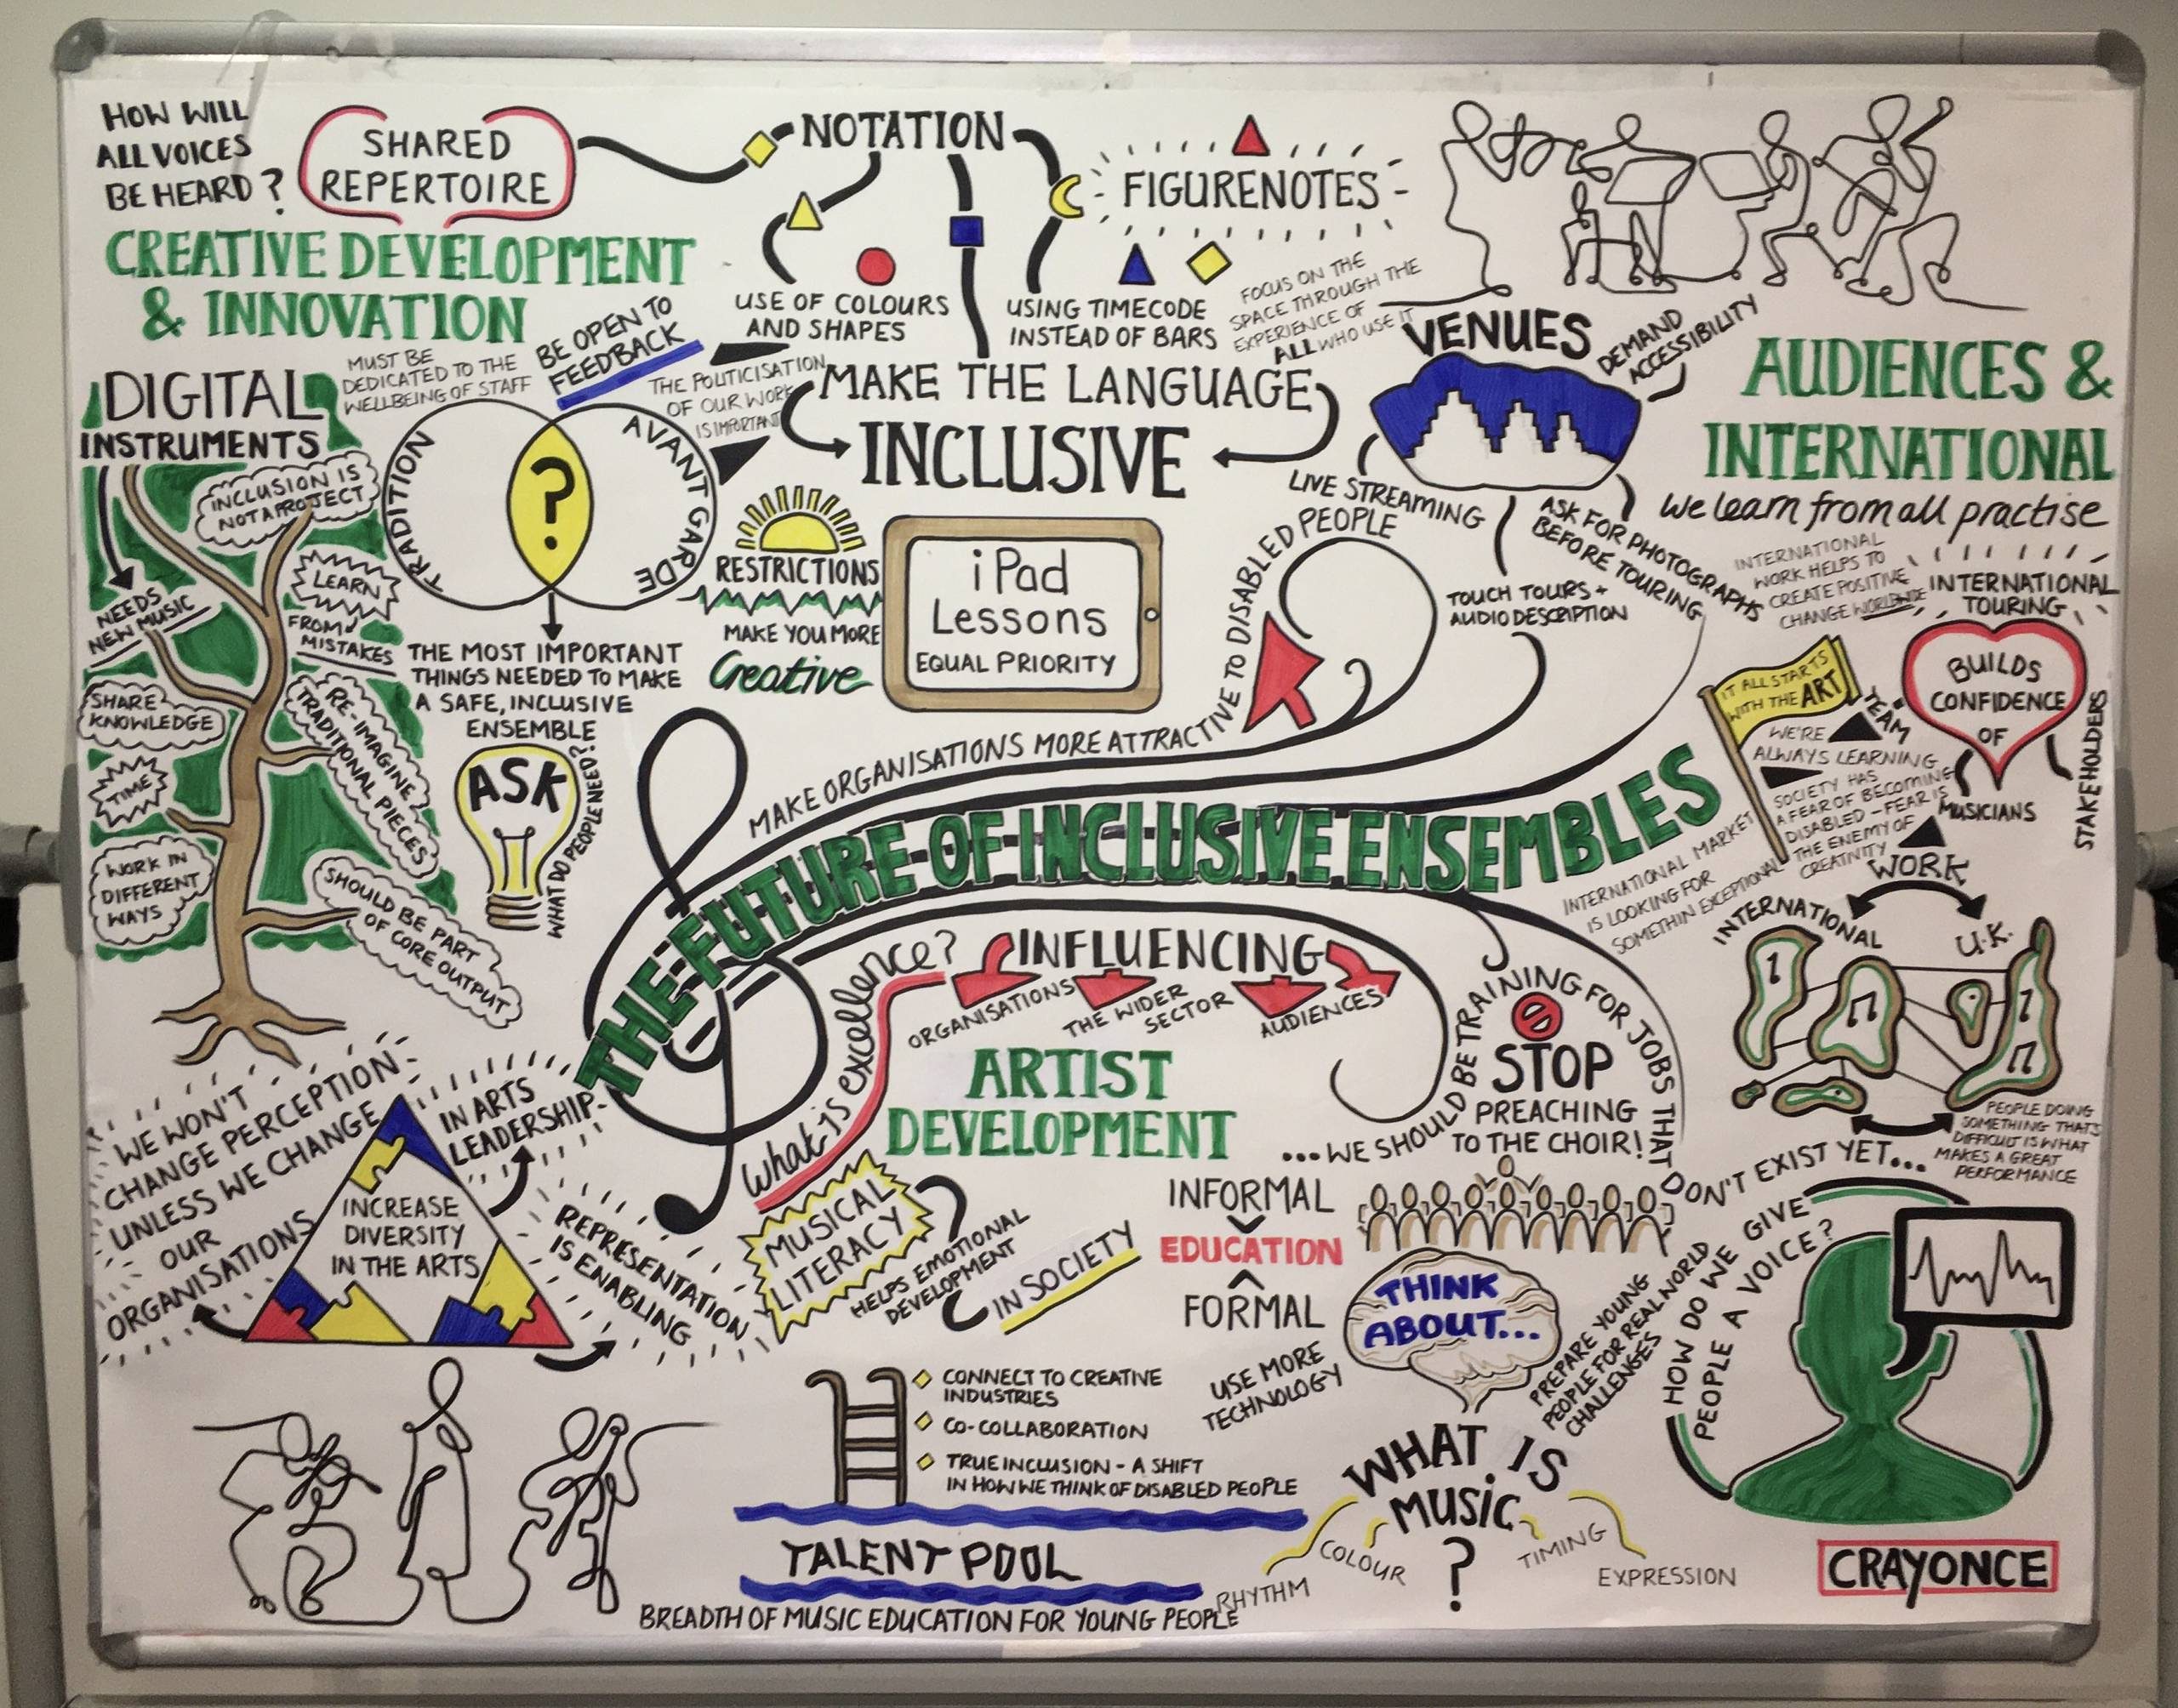 HOW WILL
ALL VOICES
BE HEARD?
SHARED
REPERTOIRE
CREATIVE DEVELOPMENT
& INNOVATION
NOTATION
FIGURENOTES
USE OF COLOURS
AND SHAPES
USING TIMECODE
INSTEAD OF BARS
FOCUS ON THE
SPACE THROUGH THE
EXPERIENCE OF
ALL WHO USE IT
MAKE THE LANGUAGE
INCLUSIVE
BE OPEN TO
FEEDBACK
MUST BE
DEDICATED TO THE
WELLBEING OF STAFF
THE POLITICISATION
OF OUR WORK
IS IMPORTANT
DIGITAL
INSTRUMENTS
NEEDS
NEW MUSIC
INCLUSION IS
NOT A PROJECT
LEARN
FROM
MISTAKES
SHARE
KNOWLEDGE
RE-IMAGINE
TRADITIONAL PIECES
TIME
WORK IN
DIFFERENT
WAYS
SHOULD BE PART
OF CORE OUTPUT
TRADITION
?
AVANT GARDE
THE MOST IMPORTANT
THINGS NEEDED TO MAKE
A SAFE, INCLUSIVE
ENSEMBLE
ASK
WHAT DO PEOPLE NEED?
RESTRICTIONS
MAKE YOU MORE
Creative
iPad
Lessons
EQUAL PRIORITY
MAKE ORGANISATIONS MORE ATTRACTIVE TO DISABLED PEOPLE
VENUES
DEMAND
ACCESSIBILITY
LIVE STREAMING
TOUCH TOURS +
AUDIO DESCRIPTION
ASK FOR PHOTOGRAPHS
BEFORE TOURING
AUDIENCES &
INTERNATIONAL
We learn from all practise
INTERNATIONAL
WORK HELPS TO
CREATE POSITIVE
CHANGE WORLDWIDE
INTERNATIONAL
TOURING
BUILDS
CONFIDENCE
OF
TEAM
MUSICIANS
STAKEHOLDERS
IT ALL STARTS
WITH THE ART
WE'RE
ALWAYS LEARNING
SOCIETY HAS
A FEAR OF BECOMING
DISABLED - FEAR IS
THE ENEMY OF
CREATIVITY
INTERNATIONAL MARKET
IS LOOKING FOR
SOMETHIN EXCEPTIONAL
WORK
INTERNATIONAL
U.K.
PEOPLE DOING
SOMETHING THATS
DIFFICULT IS WHAT
MAKES A GREAT
PERFORMANCE
THE FUTURE OF INCLUSIVE ENSEMBLES
What is excellence?
INFLUENCING
ORGANISATIONS
THE WIDER
SECTOR
AUDIENCES
ARTIST
DEVELOPMENT
...WE SHOULD BE TRAINING FOR JOBS THAT DON'T EXIST YET...
STOP
PREACHING
TO THE CHOIR!
WE WON'T
CHANGE PERCEPTION
UNLESS WE CHANGE
OUR
ORGANISATIONS
IN ARTS
LEADERSHIP
INCREASE
DIVERSITY
IN THE ARTS
REPRESENTATION
IS ENABLING
MUSICAL
LITERACY
HELPS EMOTIONAL
DEVELOPMENT
IN SOCIETY
INFORMAL
EDUCATION
FORMAL
THINK
ABOUT...
USE MORE
TECHNOLOGY
PREPARE YOUNG
PEOPLE FOR REAL WORLD
CHALLENGES
HOW DO WE GIVE
PEOPLE A VOICE?
CONNECT TO CREATIVE
INDUSTRIES
CO-COLLABORATION
TRUE INCLUSION - A SHIFT
IN HOW WE THINK OF DISABLED PEOPLE
TALENT POOL
BREADTH OF MUSIC EDUCATION FOR YOUNG PEOPLE
WHAT IS
MUSIC
?
RHYTHM
COLOUR
TIMING
EXPRESSION
CRAYONCE